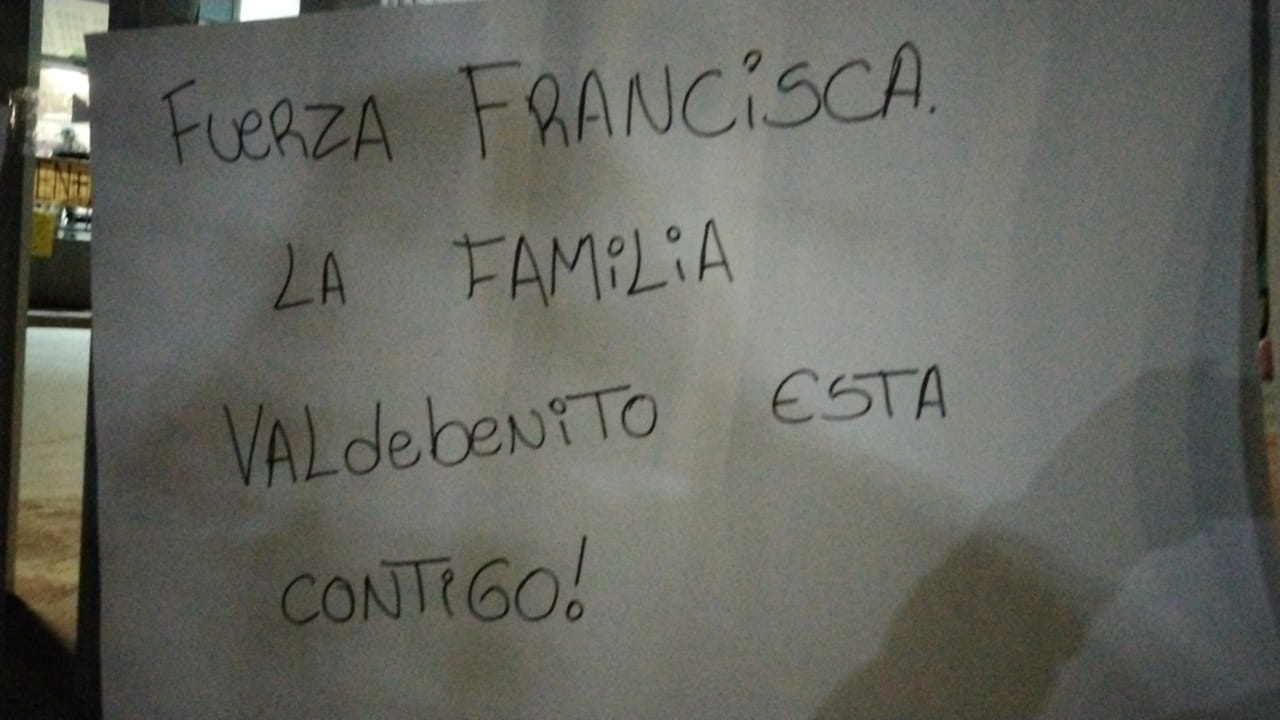 FUERZA FRANCiSCA.
LA FAMiLiA
VALdebeNiTO ESTA
CONTiGO!